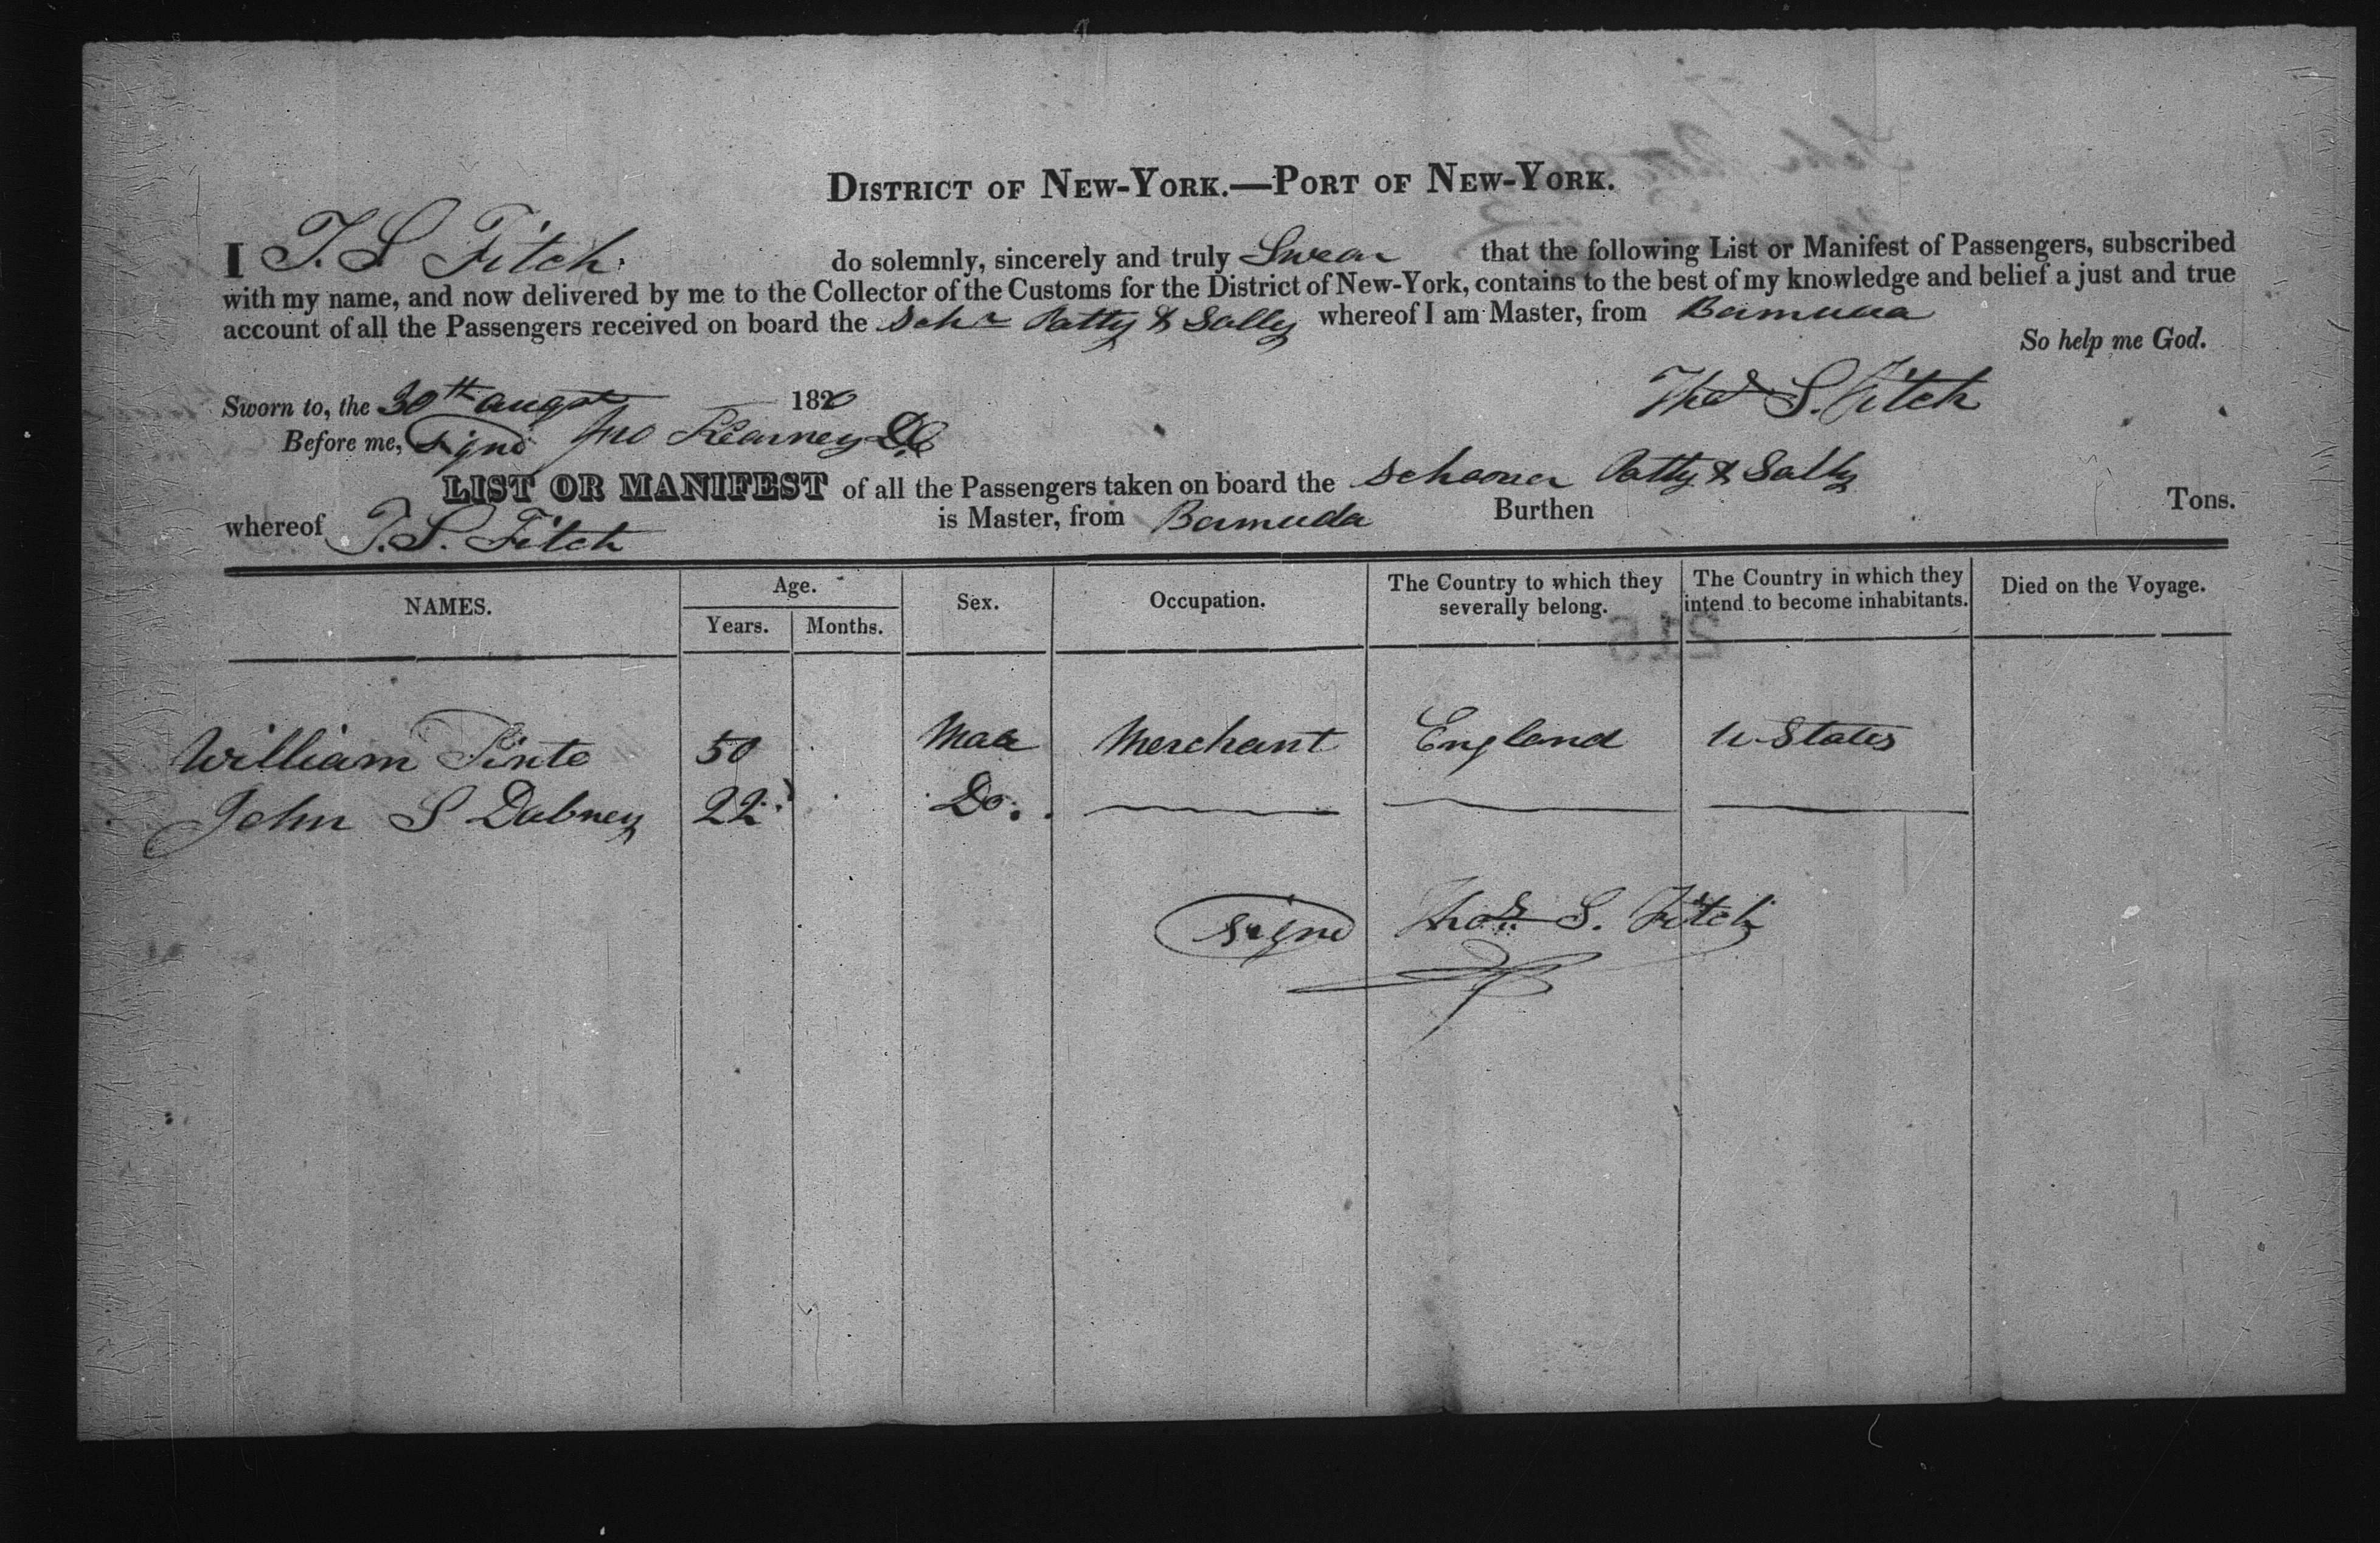 DISTRICT OF NEW-YORK.—PORT OF NEW-YORK.
I T. S Fitch do solemnly, sincerely and truly Swear that the following List or Manifest of Passengers, subscribed
with my name, and now delivered by me to the Collector of the Customs for the District of New-York, contains to the best of my knowledge and belief a just and true
account of all the Passengers received on board the Schr Patty & Sally whereof I am Master, from Bermuda
So help me God.
Sworn to, the 30th augst 1820
Thos S. Fitch
Before me, Signd Jno Kearney DC
LIST OR MANIFEST of all the Passengers taken on board the schooner Patty & Sally
whereof T. S. Fitch is Master, from Bermuda Burthen Tons.
NAMES. Age. Sex. Occupation. The Country to which they severally belong. The Country in which they intend to become inhabitants. Died on the Voyage.
Years. Months.
William Pinto 50 Male Merchant England U States
John S Dabney 22 Do.
Signd Thos S. Fitch